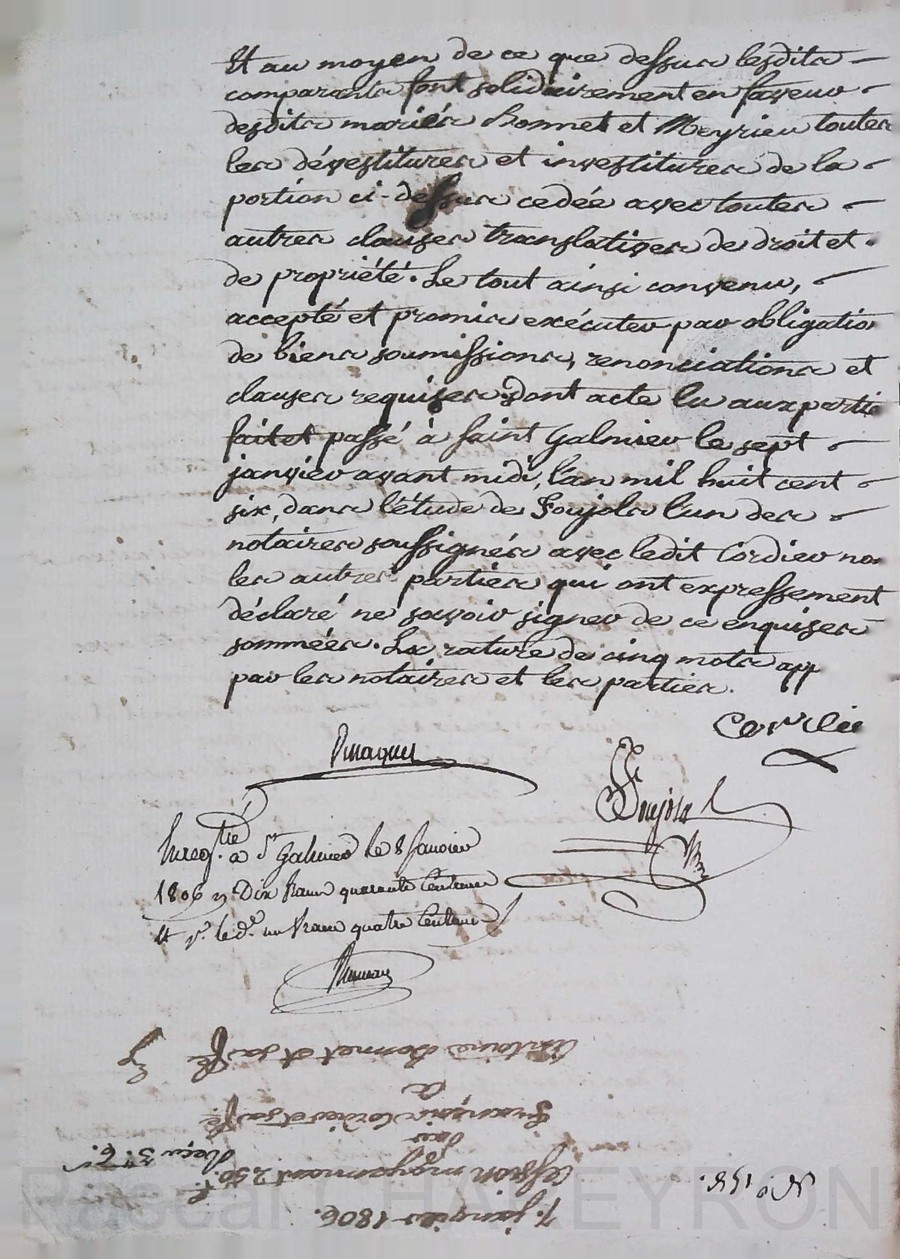 Et au moyen de ce que dessus lesdits
comparants font solidairement en faveur
desdits mariés Bonnet et Meyrieu toutes
les dévestitures et investitures de la
portion ci-dessus cedée avec toutes
autres clauses translatives de droit et
de propriété. Le tout ainsi convenu,
accepté et promis exécuter par obligatio
de biens soumissions, renonciations et
clauses requises. Dont acte lu aux partie
fait et passé à Saint Galmier le sept
janvier avant midi, l'an mil huit cent
six, dans l'étude de Foujols l'un des
notaires soussignés avec ledit Cordier no
les autres parties qui ont expressement
déclaré ne savoir signer de ce enquises
sommées. La rature de cinq mots app
par les notaires et les parties.
Foujols
Enregtré. a St Galmier le 8 Janvier
1806 Dix francs quarante Centimes
et pr. le dr. un franc quatre Centimes
7. janvier 1806.
Cession moyennant 250 f.
par
françois Cordier et sa fe
a
Antoine Bonnet et sa fe
No 158.